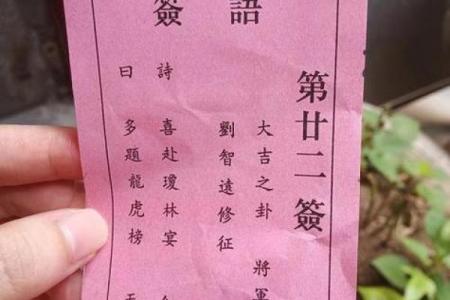 籤語
第廿二籤
大吉之卦 將軍
劉智遠修征
詩 喜赴瓊林宴
曰 多題龍虎榜